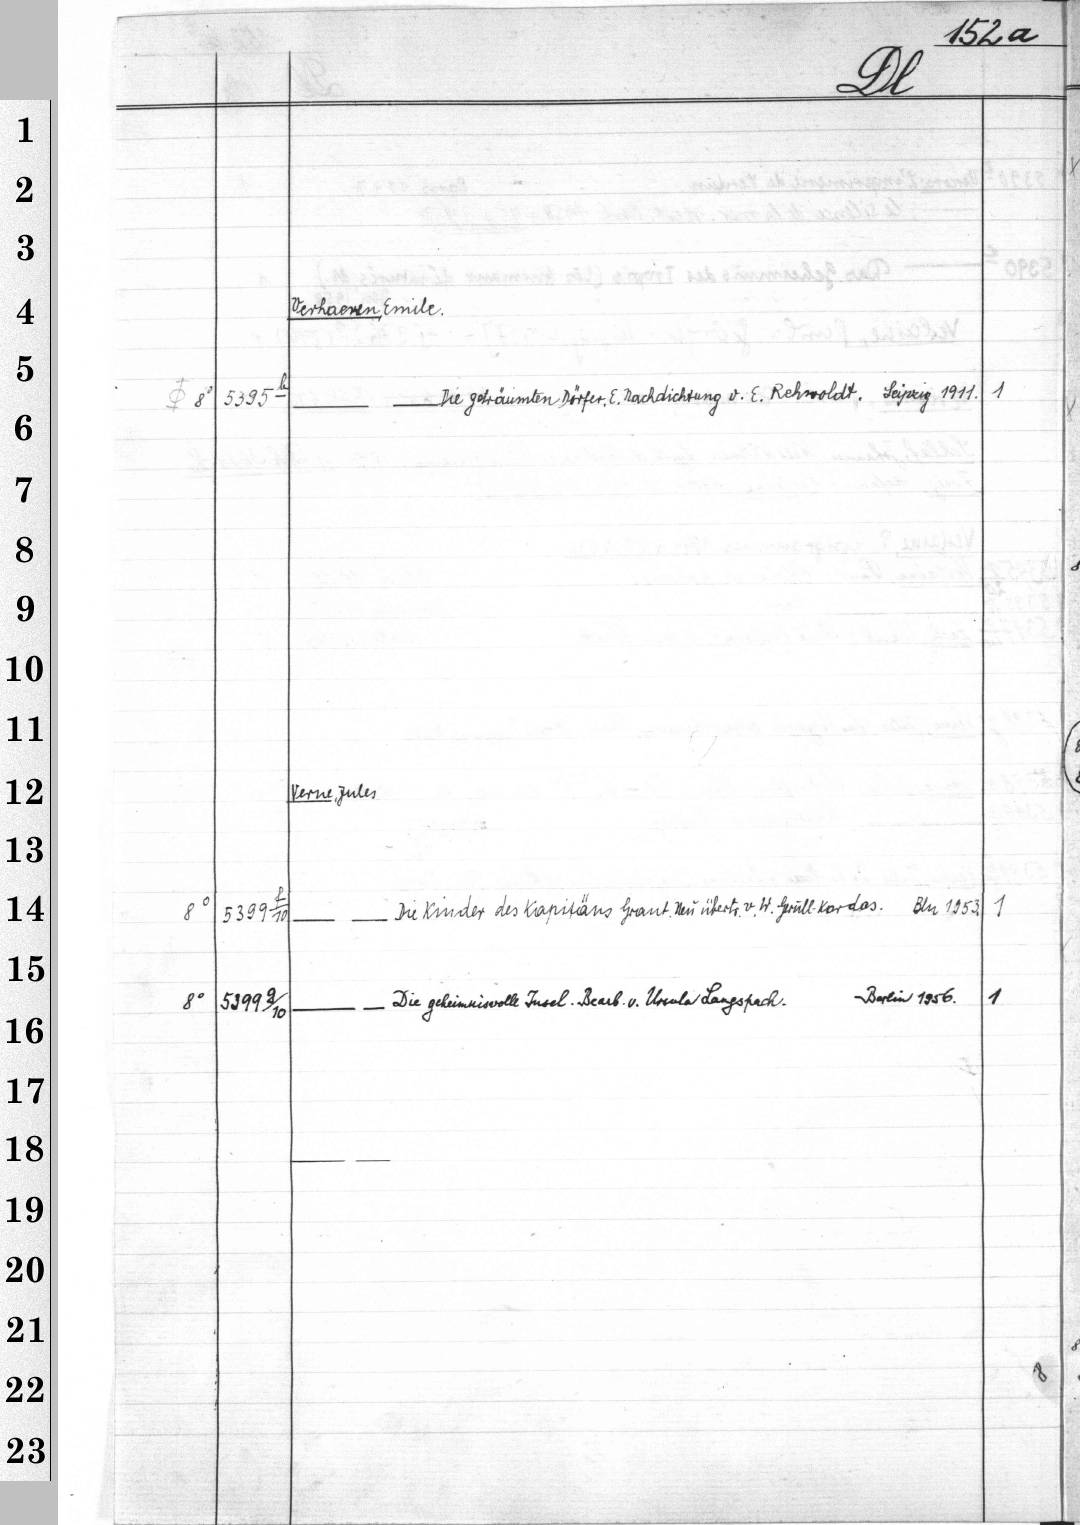 152a
Dl
1
2
3
4 Verhaeren, Emile.
5
8° 5395 b — — Die geträumten Dörfer. E. Nachdichtung v. E. Rehwoldt. Leipzig 1911. 1
6
7
8
9
10
11
12 Verne, Jules
13
14 8° 5399 f/10 — — Die Kinder des Kapitäns Grant. Neu übertr. v. W. Gerull-Kardas. Bln 1953. 1
15
8° 5399 g/10 — — Die geheimnisvolle Insel. Bearb. v. Ursula Langspach. Berlin 1956. 1
16
17
18 — —
19
20
21
22
23